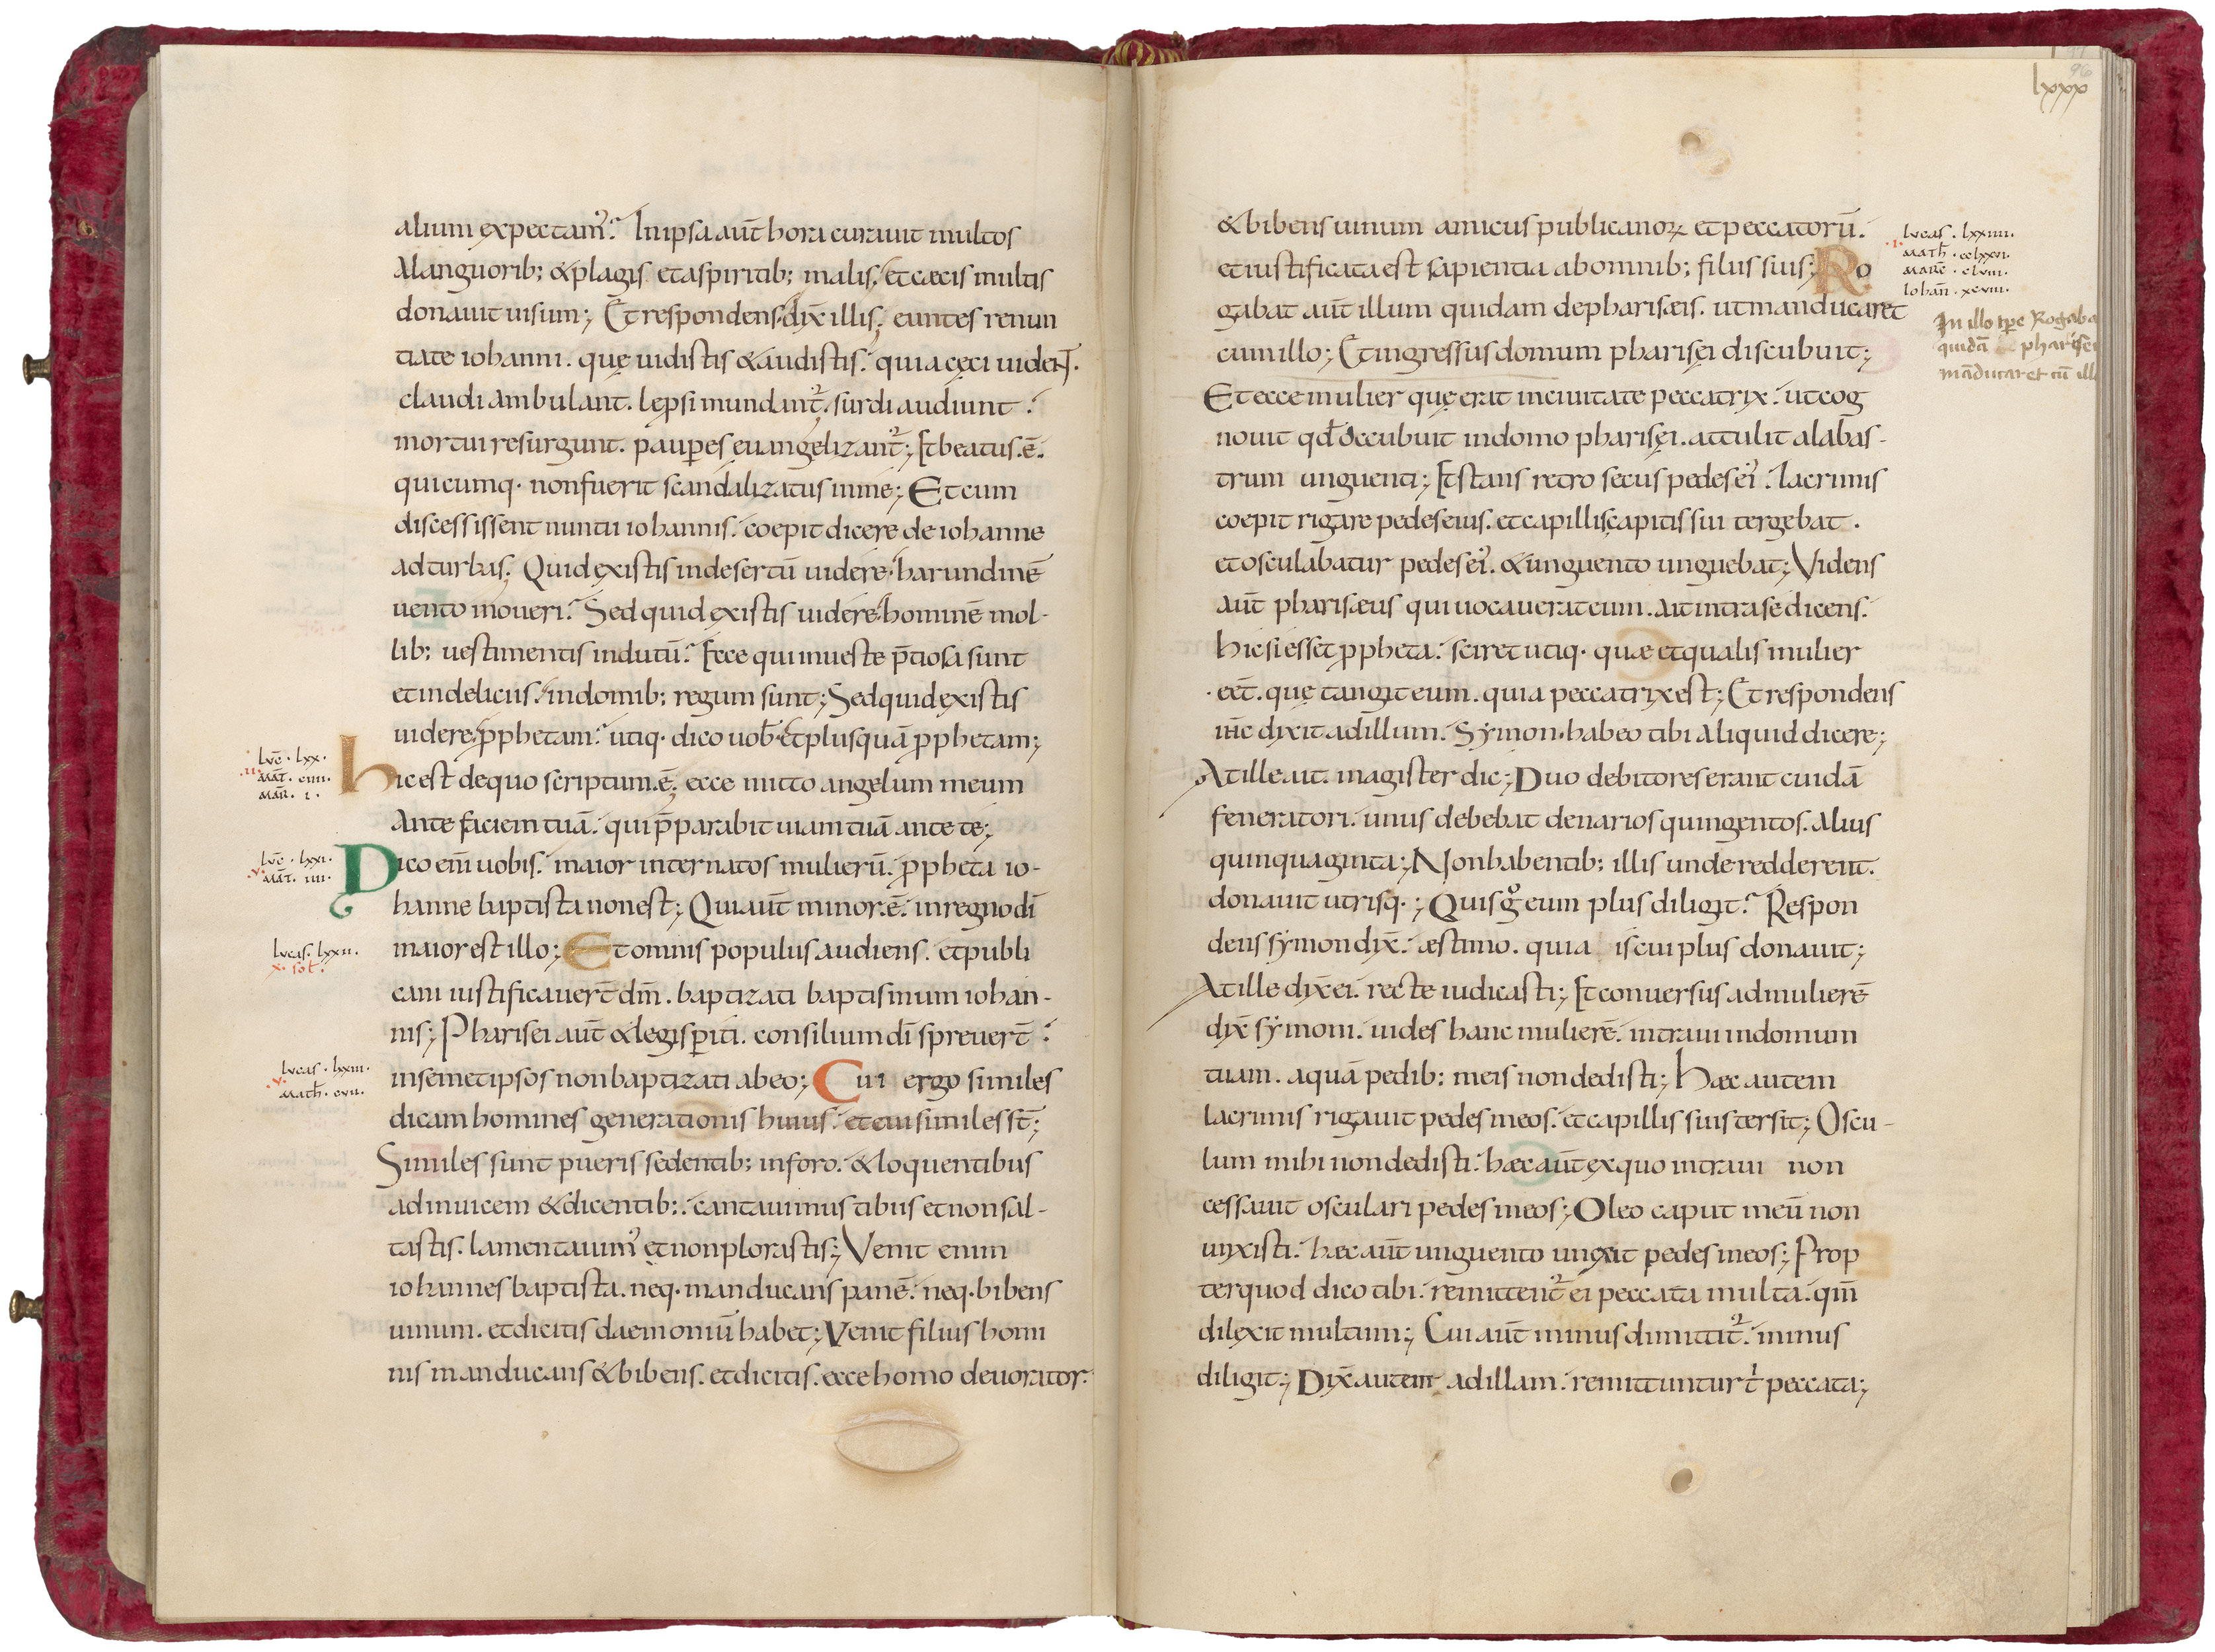 alium expectam᾽. In ipsa aūt hora curauit multos
A languorib; & plagis et aspiritib; malis. et cæcis multis
donauit uisum; Et respondens dix̄ illis; euntes renun
tiate iohanni. quę uidistis & audistis. quia cęci uident.
claudi ambulant. lępsi mundant᾽. surdi audiunt.
mortui resurgunt. pauꝑes euangelizant᾽; Et beatus .ē.
quicumq· non fuerit scandalizatus in me; Et cum
discessissent nuntii iohannis. coepit dicere de iohanne
ad turbas; Quid existis in desertū uidere. harundinē
uento moueri. Sed quid existis uidere. hominē mol-
lib; uestimentis indutū. Ecce qui in ueste p̄tiosa sunt
et in deliciis. in domib; regum sunt; Sed quid existis
uidere. ꝓphetam. utiq· dico uob̄. Et plus quā ꝓphetam;
lvc̄ · lxx ·
.ii. mat̄. ciii.
mar̄. i.
hic est de quo scriptum .ē; ecce mitto angelum meum
Ante faciem tuā. qui p̄parabit uiam tuā ante te;
lvc̄ · lxxi.
.v. mat̄. iiii.
Dico em̄ uobis. maior inter natos mulierū. ꝓpheta io-
hanne baptista non est; Qui aūt minor .ē. in regno dī
lvcas. lxxii.
x. sol̄.
maior est illo; Et omnis populus audiens. et publi
cani iustificauer̄t dm̄. baptizati baptismum iohan-
nis; Pharisei aūt & legis ꝑiti. consilium dī spreuer̄t
lvcas · lxxiii.
.v. math̄. cvii.
in semetipsos non baptizati ab eo; Cui ergo similes
dicam homines generationis huius. et cui similes st̄;
Similes sunt pueris sedentib; in foro. & loquentibus
ad inuicem & dicentib;. cantauimus tibiis et non sal-
tastis. lamentauim᾽ et non plorastis; Venit enim
iohannes baptista. neq· manducans panē. neq· bibens
uinum. et dicitis daemoniū habet; Venit filius homi
nis manducans & bibens. et dicitis. ecce homo deuorator.
96
lxxx
& bibens uinum amicus publicanoꝝ et peccatorū.
et iustificata est sapientia ab omnib; filiis suis; Ro
.i. lvcas. lxxiiii.
math̄. cclxxvi.
marc̄. clviii.
Iohan̄. xcviii.
gabat aūt illum quidam de pharisæis. ut manducaret
In illo tp̄e Rogaba
quidā pharisei
māducaret cū ill
cum illo; Et ingressus domum pharisęi discubuit;
Et ecce mulier quę erat in ciuitate peccatrix. ut cog
nouit qd̄ occubuit in domo pharisęi. attulit alabas-
trum unguenti; Et stans retro secus pedes ei᾽. lacrimis
coepit rigare pedes eius. et capillis capitis sui tergebat.
et osculabatur pedes ei᾽. & unguento unguebat; Videns
aūt pharisæus qui uocauerat eum. ait intra se dicens.
hic si esset ꝓpheta. sciret utiq· quæ et qualis mulier
eēt. quę tangit eum. quia peccatrix est; Et respondens
ih̄c dixit ad illum. Symon. habeo tibi aliquid dicere;
At ille ait. magister dic; Duo debitores erant cuidā
feneratori. unus debebat denarios quingentos. alius
quinquaginta; Non habentib; illis unde redderent.
donauit utrisq·; Quis g° eum plus diligit. Respon
dens symon dix̄. æstimo. quia is cui plus donauit;
At ille dix̄ ei. recte iudicasti; Et conuersus ad mulierē
dix̄ symoni. uides hanc mulierē. intraui in domum
tuam. aquā pedib; meis non dedisti; Hæc autem
lacrimis rigauit pedes meos. et capillis suis tersit; Oscu-
lum mihi non dedisti. hæc aūt ex quo intraui non
cessauit osculari pedes meos; Oleo caput meū non
unxisti. hæc aūt unguento unxit pedes meos; Prop
ter quod dico tibi. remittent᾽ ei peccata multa. qm̄
dilexit multum; Cui aūt minus dimittit᾽. minus
diligit; Dix̄ autem ad illam. remittuntur t̄ peccata;